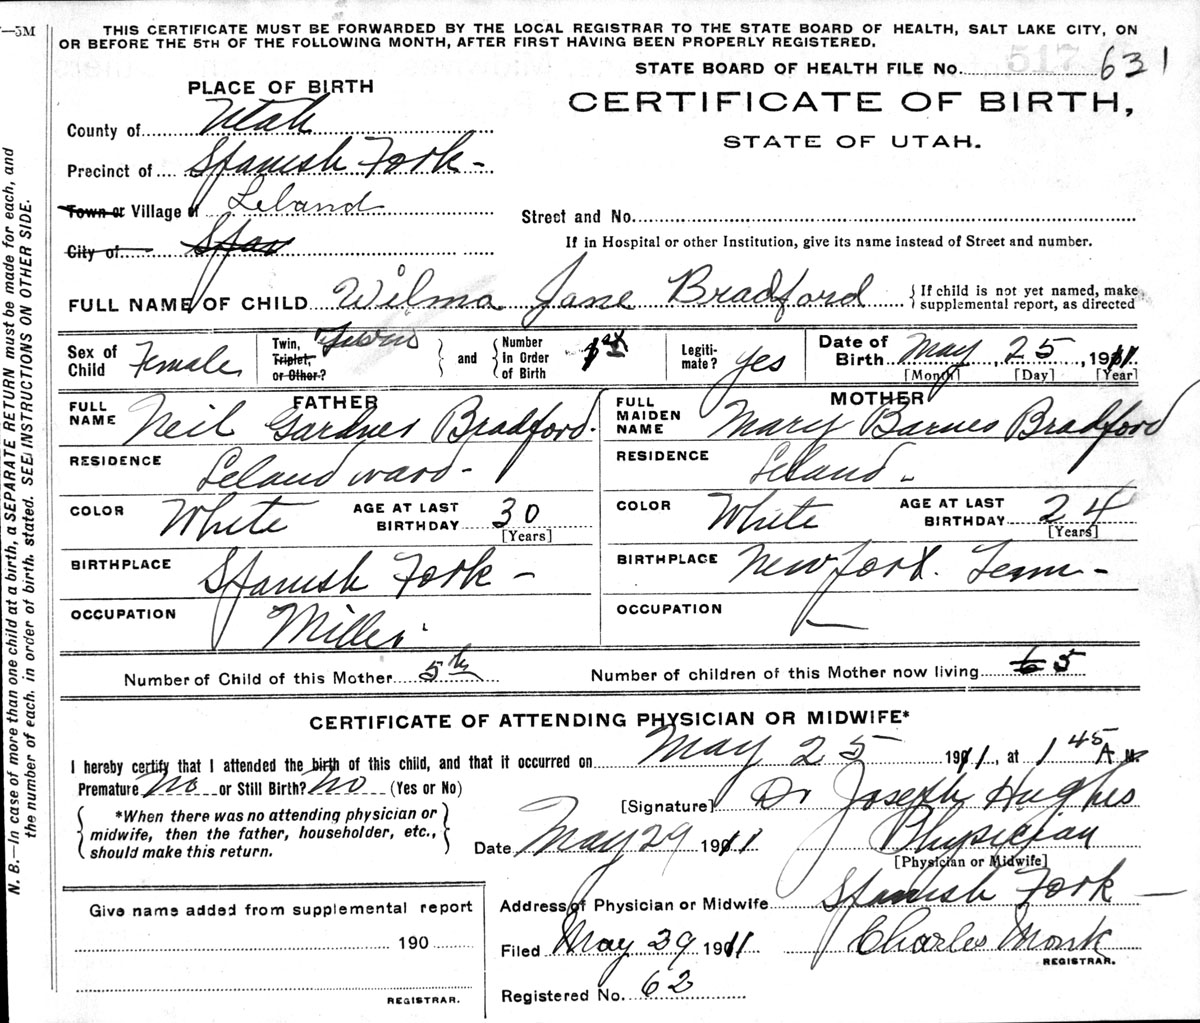 —5M
THIS CERTIFICATE MUST BE FORWARDED BY THE LOCAL REGISTRAR TO THE STATE BOARD OF HEALTH, SALT LAKE CITY, ON
OR BEFORE THE 5TH OF THE FOLLOWING MONTH, AFTER FIRST HAVING BEEN PROPERLY REGISTERED.
STATE BOARD OF HEALTH FILE No. 631
PLACE OF BIRTH
CERTIFICATE OF BIRTH,
STATE OF UTAH.
County of Utah
Precinct of Spanish Fork -
Town or Village of Leland
City of Span
Street and No.
If in Hospital or other Institution, give its name instead of Street and number.
FULL NAME OF CHILD Wilma Jane Bradford
{ If child is not yet named, make
supplemental report, as directed
Sex of Child Female
Twin, Triplet, or Other? Twins
and
Number In Order of Birth 1st
Legiti-mate? yes
Date of Birth May 25, 1911
[Month] [Day] [Year]
FATHER
FULL NAME Neil Gardner Bradford.
RESIDENCE Leland ward -
COLOR White AGE AT LAST BIRTHDAY 30
[Years]
BIRTHPLACE Spanish Fork -
OCCUPATION Miller
MOTHER
FULL MAIDEN NAME Mary Barnes Bradford
RESIDENCE Leland -
COLOR White AGE AT LAST BIRTHDAY 24
[Years]
BIRTHPLACE
OCCUPATION —
Number of Child of this Mother 5th
Number of children of this Mother now living 6 5
CERTIFICATE OF ATTENDING PHYSICIAN OR MIDWIFE*
I hereby certify that I attended the birth of this child, and that it occurred on May 25 1911, at 1 45 A M.
Premature No or Still Birth? No (Yes or No)
[Signature] Dr Joseph Hughes
*When there was no attending physician or
midwife, then the father, householder, etc.,
should make this return.
Date May 29 1911 Physician
[Physician or Midwife]
Address of Physician or Midwife Spanish Fork -
Filed May 29 1911 Charles Monk
REGISTRAR.
Registered No. 62
Give name added from supplemental report
190
REGISTRAR.
N. B.—In case of more than one child at a birth, a SEPARATE RETURN must be made for each, and
the number of each, in order of birth, stated. SEE INSTRUCTIONS ON OTHER SIDE.